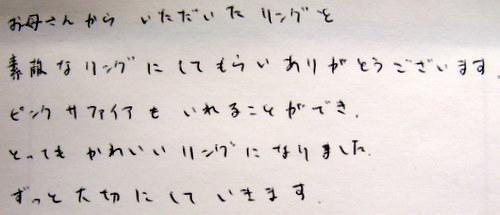 お母さんから いただいた リングを
素敵な リングに してもらい ありがとうございます.
ピンク サファイア も いれることができ.
とっても かわいい リングに なりました.
ずっと 大切に して いきます.